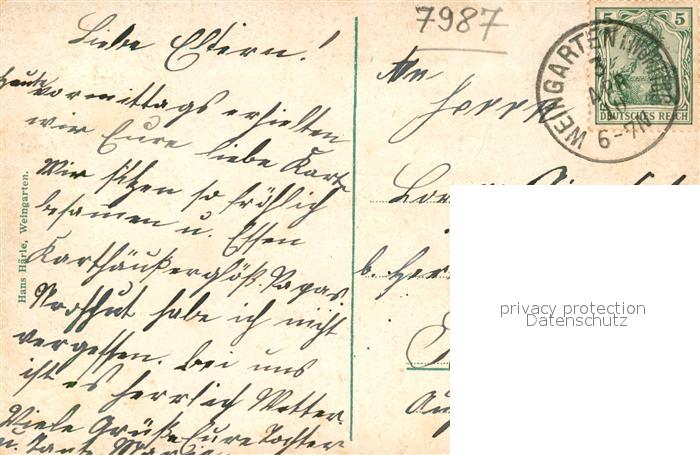 7987
Liebe Eltern!
Heute
vormittags erhielten
wir Eure liebe Karte
Wir sitzen so fröhlich
beisamen u. Essen
Karthäußerglöß. Papas
habe ich nicht
vergessen. bei uns
ist es herrlich Wetter.
Viele Grüße Eure Tochter
u. Tante Marie
Hans Härle, Weingarten.
An
Herrn
b. Her
5 5
DEUTSCHES REICH
WEINGARTEN
APR
6-7N
privacy protection
Datenschutz